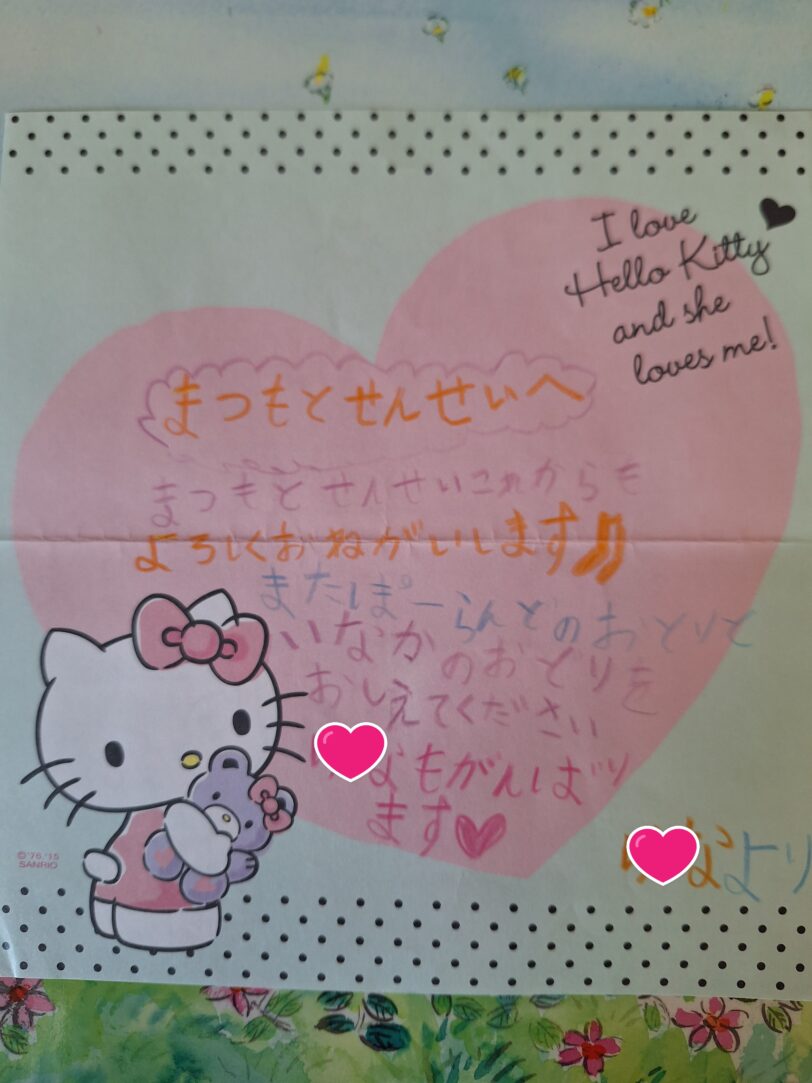 I love
Hello Kitty
and she
loves me!
まつもとせんせいへ
まつもとせんせいこれからも
よろしくおねがいします
またぽーらんどのおどりと
いなかのおどりを
おしえてください
なもがんばり
ます
なより
©'76,'15
SANRIO